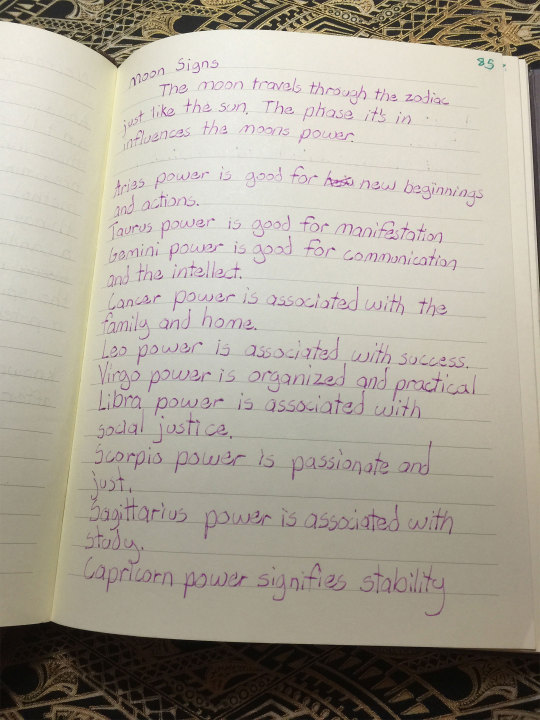 85
Moon Signs
The moon travels through the zodiac
just like the sun. The phase it's in
influences the moons power.
Aries power is good for new beginnings
and actions.
Taurus power is good for manifestation
Gemini power is good for communication
and the intellect.
Cancer power is associated with the
family and home.
Leo power is associated with success.
Virgo power is organized and practical
Libra power is associated with
social justice.
Scorpio power is passionate and
just.
Sagittarius power is associated with
study.
Capricorn power signifies stability